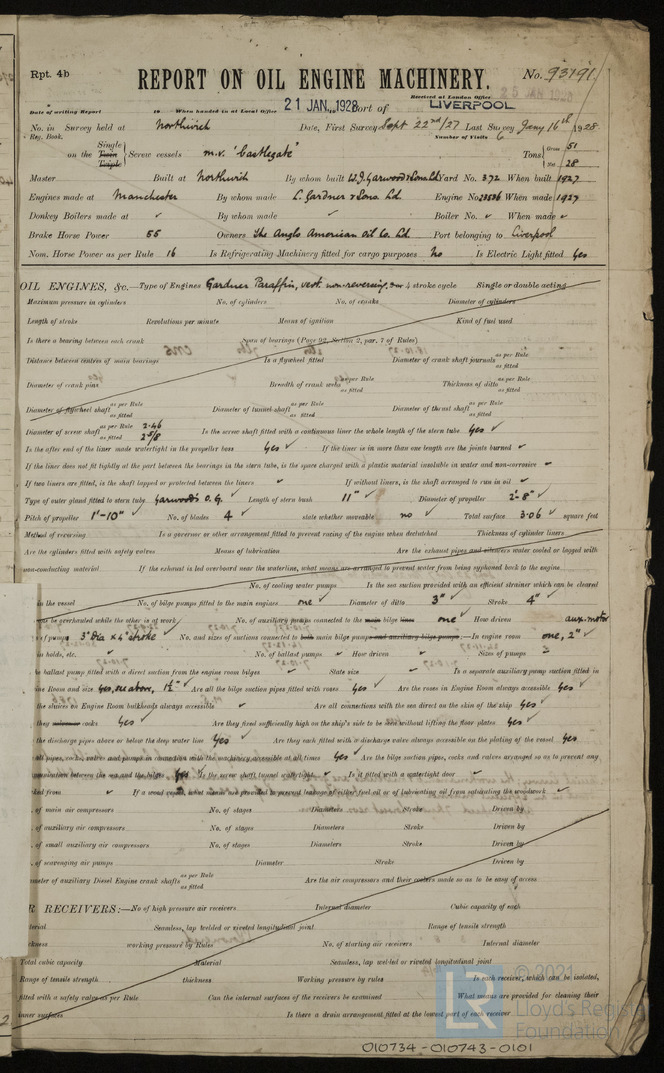 Rpt. 4b REPORT ON OIL ENGINE MACHINERY. No. 93191
Received at London Office 25 JAN 1928
Date of writing Report 19 When handed in at Local Office 21 JAN. 1928 Port of LIVERPOOL
No. in Survey held at Northwich Date, First Survey Sept 22nd/27 Last Survey Jany 16th 1928
Reg. Book. Number of Visits 6
on the Single Twin Triple Screw vessels m.v. 'Castlegate' Tons Gross 51 Net 28
Master Built at Northwich By whom built W.J. Yarwood & Sons Ld Yard No. 372 When built 1927
Engines made at Manchester By whom made L. Gardner & Sons Ld. Engine No. When made 1927
Donkey Boilers made at ✓ By whom made ✓ Boiler No. ✓ When made ✓
Brake Horse Power 55 Owners The Anglo American Oil Co. Ld. Port belonging to Liverpool
Nom. Horse Power as per Rule 16 Is Refrigerating Machinery fitted for cargo purposes No Is Electric Light fitted Yes
OIL ENGINES, &c.—Type of Engines Gardner Paraffin, vert. non-reversing, 2 or 4 stroke cycle Single or double acting
Maximum pressure in cylinders No. of cylinders No. of cranks Diameter of cylinders
Length of stroke Revolutions per minute Means of ignition Kind of fuel used
Is there a bearing between each crank Span of bearings (Page 92, Section 2, par. 7 of Rules)
Distance between centres of main bearings Is a flywheel fitted Diameter of crank shaft journals as per Rule as fitted
Diameter of crank pins Breadth of crank webs as per Rule as fitted Thickness of ditto as per Rule as fitted
Diameter of flywheel shaft as per Rule as fitted Diameter of tunnel shaft as per Rule as fitted Diameter of thrust shaft as per Rule as fitted
Diameter of screw shaft as per Rule 2.46 as fitted 2 5/8 Is the screw shaft fitted with a continuous liner the whole length of the stern tube Yes ✓
Is the after end of the liner made watertight in the propeller boss Yes ✓ If the liner is in more than one length are the joints burned ✓
If the liner does not fit tightly at the part between the bearings in the stern tube, is the space charged with a plastic material insoluble in water and non-corrosive ✓
If two liners are fitted, is the shaft lapped or protected between the liners ✓ If without liners, is the shaft arranged to run in oil ✓
Type of outer gland fitted to stern tube Yarwood's O.G. ✓ Length of stern bush 11" ✓ Diameter of propeller 2'-8" ✓
Pitch of propeller 1'-10" ✓ No. of blades 4 ✓ state whether moveable no ✓ Total surface 3.06 ✓ square feet
Method of reversing Is a governor or other arrangement fitted to prevent racing of the engine when declutched Thickness of cylinder liners
Are the cylinders fitted with safety valves Means of lubrication Are the exhaust pipes and silencers water cooled or lagged with
non-conducting material If the exhaust is led overboard near the waterline, what means are arranged to prevent water from being syphoned back to the engine
No. of cooling water pumps Is the sea suction provided with an efficient strainer which can be cleared
in the vessel No. of bilge pumps fitted to the main engines one ✓ Diameter of ditto 3" ✓ Stroke 4" ✓
be overhauled while the other is at work ✓ No. of auxiliary pumps connected to the main bilge lines one ✓ How driven aux. motor
of pumps 3" dia x 4" stroke ✓ No. and sizes of suctions connected to both main bilge pumps and auxiliary bilge pumps:—In engine room one, 2" ✓
in holds, etc. ✓ No. of ballast pumps ✓ How driven ✓ Sizes of pumps
ballast pump fitted with a direct suction from the engine room bilges ✓ State size ✓ Is a separate auxiliary pump suction fitted in
Room and size yes, see above, 1½" ✓ Are all the bilge suction pipes fitted with roses Yes ✓ Are the roses in Engine Room always accessible Yes ✓
the sluices on Engine Room bulkheads always accessible ✓ Are all connections with the sea direct on the skin of the ship Yes ✓
they valves or cocks Yes ✓ Are they fixed sufficiently high on the ship's side to be seen without lifting the floor plates Yes ✓
the discharge pipes above or below the deep water line Yes ✓ Are they each fitted with a discharge valve always accessible on the plating of the vessel Yes
all pipes, cocks, valves and pumps in connection with the machinery accessible at all times Yes ✓ Are the bilge suction pipes, cocks and valves arranged so as to prevent any
communication between the sea and the bilges Yes ✓ Is the screw shaft tunnel watertight ✓ Is it fitted with a watertight door ✓
worked from ✓ If a wood vessel, what means are provided to prevent leakage of either fuel oil or of lubricating oil from saturating the woodwork ✓
of main air compressors No. of stages Diameters Stroke Driven by
of auxiliary air compressors No. of stages Diameters Stroke Driven by
of small auxiliary air compressors No. of stages Diameters Stroke Driven by
of scavenging air pumps Diameter Stroke Driven by
of auxiliary Diesel Engine crank shafts as per Rule as fitted Are the air compressors and their coolers made so as to be easy of access
RECEIVERS:—No of high pressure air receivers Internal diameter Cubic capacity of each
Seamless, lap welded or riveted longitudinal joint Range of tensile strength
working pressure by Rules No. of starting air receivers Internal diameter
Total cubic capacity Material Seamless, lap welded or riveted longitudinal joint
Range of tensile strength thickness Working pressure by rules Is each receiver, which can be isolated,
fitted with a safety valve as per Rule Can the internal surfaces of the receivers be examined What means are provided for cleaning their
inner surfaces Is there a drain arrangement fitted at the lowest part of each receiver
LR © 2021 Lloyd's Register Foundation
010734-010743-0101